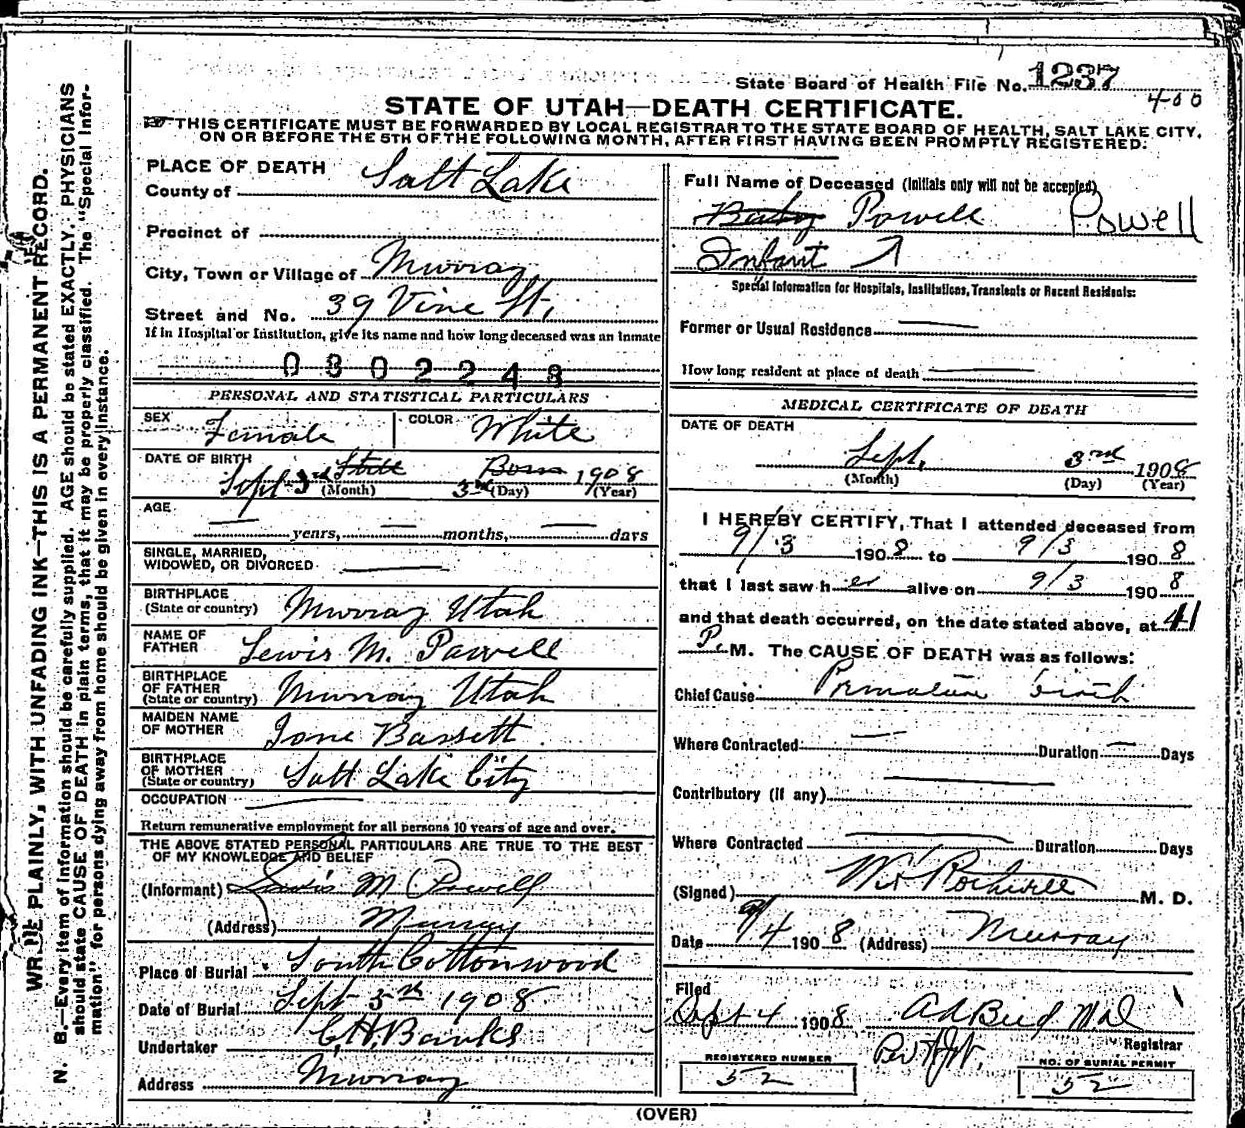 State Board of Health File No. 1237
400
STATE OF UTAH—DEATH CERTIFICATE.
THIS CERTIFICATE MUST BE FORWARDED BY LOCAL REGISTRAR TO THE STATE BOARD OF HEALTH, SALT LAKE CITY,
ON OR BEFORE THE 5TH OF THE FOLLOWING MONTH, AFTER FIRST HAVING BEEN PROMPTLY REGISTERED.
WRITE PLAINLY, WITH UNFADING INK—THIS IS A PERMANENT RECORD.
N. B.—Every item of information should be carefully supplied. AGE should be stated EXACTLY. PHYSICIANS
should state CAUSE OF DEATH in plain terms, that it may be properly classified. The "Special Infor-
mation" for persons dying away from home should be given in every instance.
PLACE OF DEATH
County of Salt Lake
Precinct of
City, Town or Village of Murray
Street and No. 39 Vine St.
If in Hospital or Institution, give its name and how long deceased was an inmate
0302248
PERSONAL AND STATISTICAL PARTICULARS
SEX Female COLOR White
DATE OF BIRTH Sept 3rd Still Born 1908
(Month) 3rd (Day) (Year)
AGE
years, months, days
SINGLE, MARRIED,
WIDOWED, OR DIVORCED
BIRTHPLACE
(State or country) Murray Utah
NAME OF
FATHER Lewis M. Powell
BIRTHPLACE
OF FATHER
(State or country) Murray Utah
MAIDEN NAME
OF MOTHER Jane Bassett
BIRTHPLACE
OF MOTHER
(State or country) Salt Lake City
OCCUPATION
Return remunerative employment for all persons 10 years of age and over.
THE ABOVE STATED PERSONAL PARTICULARS ARE TRUE TO THE BEST
OF MY KNOWLEDGE AND BELIEF
(Informant) Lewis M Powell
(Address) Murray
Place of Burial South Cottonwood
Date of Burial Sept 5th 1908
Undertaker C.H. Banks
Address Murray
Full Name of Deceased (Initials only will not be accepted)
Baby Powell Powell
Infant
Special Information for Hospitals, Institutions, Transients or Recent Residents:
Former or Usual Residence
How long resident at place of death
MEDICAL CERTIFICATE OF DEATH
DATE OF DEATH
Sept. 3rd 1908
(Month) (Day) (Year)
I HEREBY CERTIFY, That I attended deceased from
9/3 1908 to 9/3 1908
that I last saw her alive on 9/3 1908
and that death occurred, on the date stated above, at
P. M. The CAUSE OF DEATH was as follows:
Chief Cause Premature birth
Where Contracted Duration Days
Contributory (if any)
Where Contracted Duration Days
(Signed) Rothwell M. D.
Date 9/4 1908 (Address) Murray
Filed
Sept 4 1908
Registrar
REGISTERED NUMBER
52
NO. OF BURIAL PERMIT
52
(OVER)